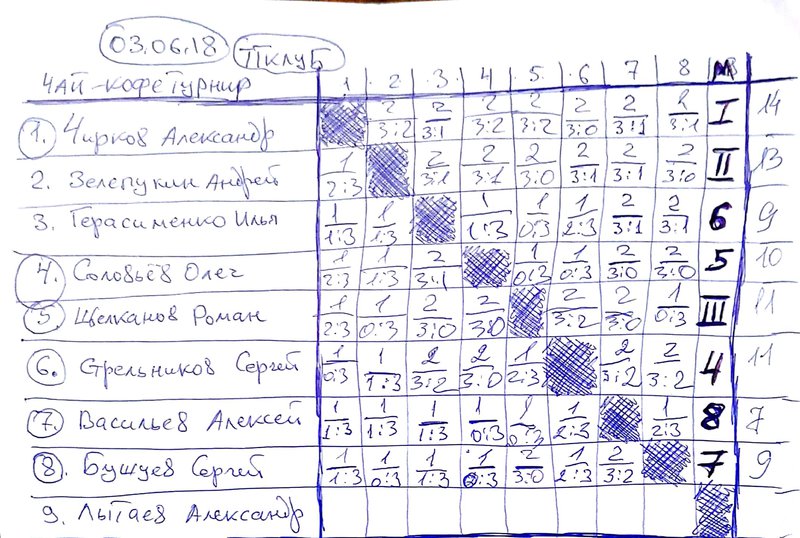 03.06.18 ПКЛУБ
ЧАЙ-КОФЕТУРНИР 1 2 3 4 5 6 7 8 М
1. Чирков Александр 2 3:2 2 3:1 2 3:2 2 3:2 2 3:0 2 3:1 2 3:1 I 14
2. Зелепукин Андрей 1 2:3 2 3:1 2 3:1 2 3:0 2 3:1 2 3:1 2 3:0 II 13
3. Герасименко Илья 1 1:3 1 1:3 1 1:3 1 0:3 1 2:3 2 3:1 2 3:1 6 9
4. Соловьёв Олег 1 2:3 1 1:3 2 3:1 1 0:3 1 0:3 2 3:0 2 3:0 5 10
5 Щелканов Роман 1 2:3 1 0:3 2 3:0 2 3:0 2 3:2 2 3:0 1 0:3 III 11
6. Стрельников Сергей 1 0:3 1 1:3 2 3:2 2 3:0 1 2:3 2 3:2 2 3:2 4 11
7. Васильев Алексей 1 1:3 1 1:3 1 1:3 1 0:3 1 0:3 1 2:3 1 2:3 8 7
8. Бушуев Сергей 1 1:3 1 0:3 1 1:3 1 0:3 2 3:0 1 2:3 2 3:2 7 9
9. Лытаев Александр